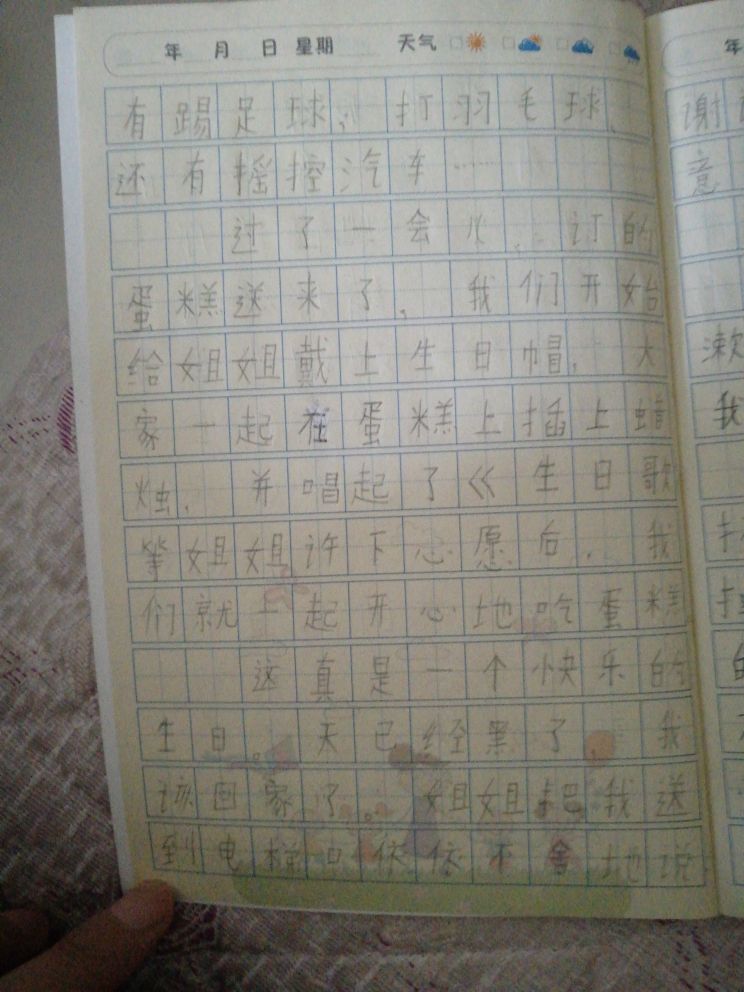 年 月 日 星期 天气 年
有踢足球，打羽毛球、 谢
还有摇控汽车…… 意
过了一会儿，订的
蛋糕送来了，我们开始
给姐姐戴上生日帽，大 漱
家一起在蛋糕上插上蜡 我
烛，并唱起了《生日歌
等姐姐许下心愿后，我
们就一起开心地吃蛋糕
这真是一个快乐的
生日。天已经黑了，我
该回家了，姐姐把我送
到电梯口依依不舍地说，